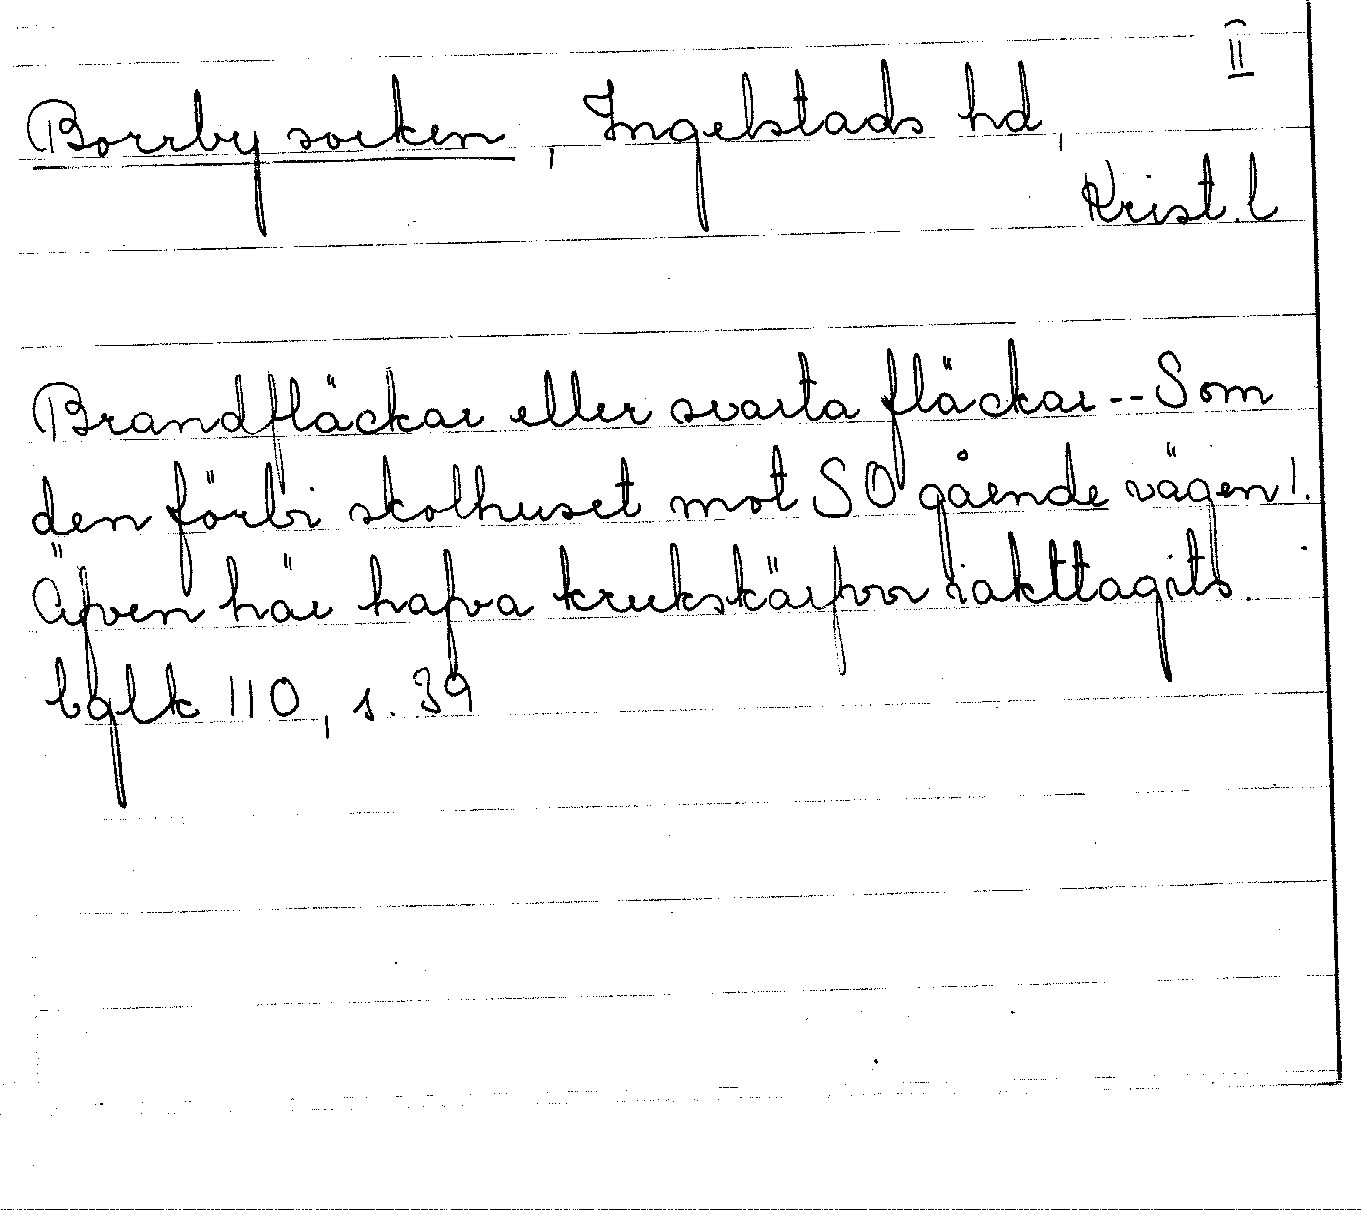 II
Borrby socken, Ingelstads hd,
Krist. l
Brandfläckar eller svarta fläckar -- Som
den förbi skolhuset mot SO gående vägen!.
Äfven här hafva krukskärfvor iakttagits.
bqlk 110, s. 39